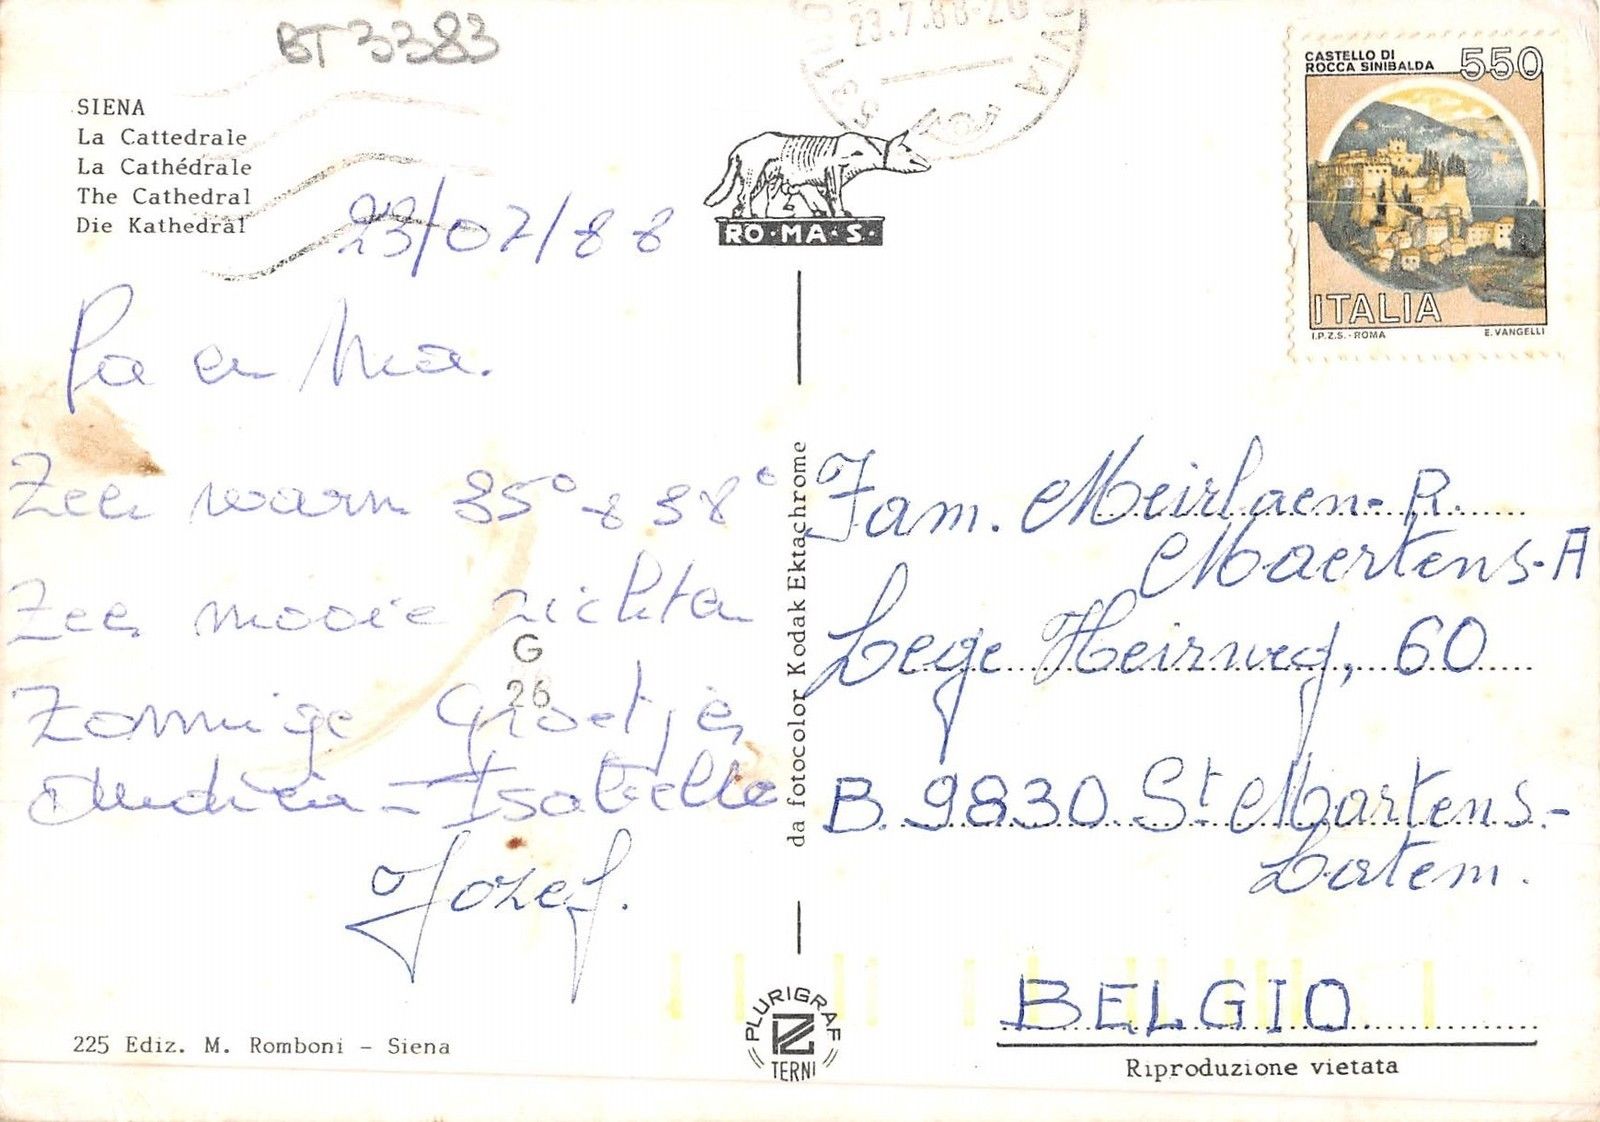 BT 3383
SIENA
La Cattedrale
La Cathédrale
The Cathedral
Die Kathedral
23/07/88
Pa en Ma.
Zeer warm 35° - 38°
Zeer mooie zichten
Zonnige Groetjes
Isabelle
Jozef.
G
26
225 Ediz. M. Romboni - Siena
23.7.88-20
RO·MA·S·
da fotocolor Kodak Ektachrome
PLURIGRAF
TERNI
CASTELLO DI
ROCCA SINIBALDA 550
ITALIA
I.P.Z.S. - ROMA E. VANGELLI
Fam. Meirlaen-R.
Maertens-A
Lege Heirweg, 60
B. 9830 St Martens-
Latem.
BELGIO
Riproduzione vietata